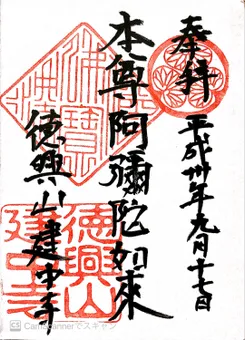 奉拝
平成卅年九月十七日
本尊阿彌陀如來
徳興山建中寺
佛法僧寶
徳興山
建中寺
CS CamScannerでスキャン